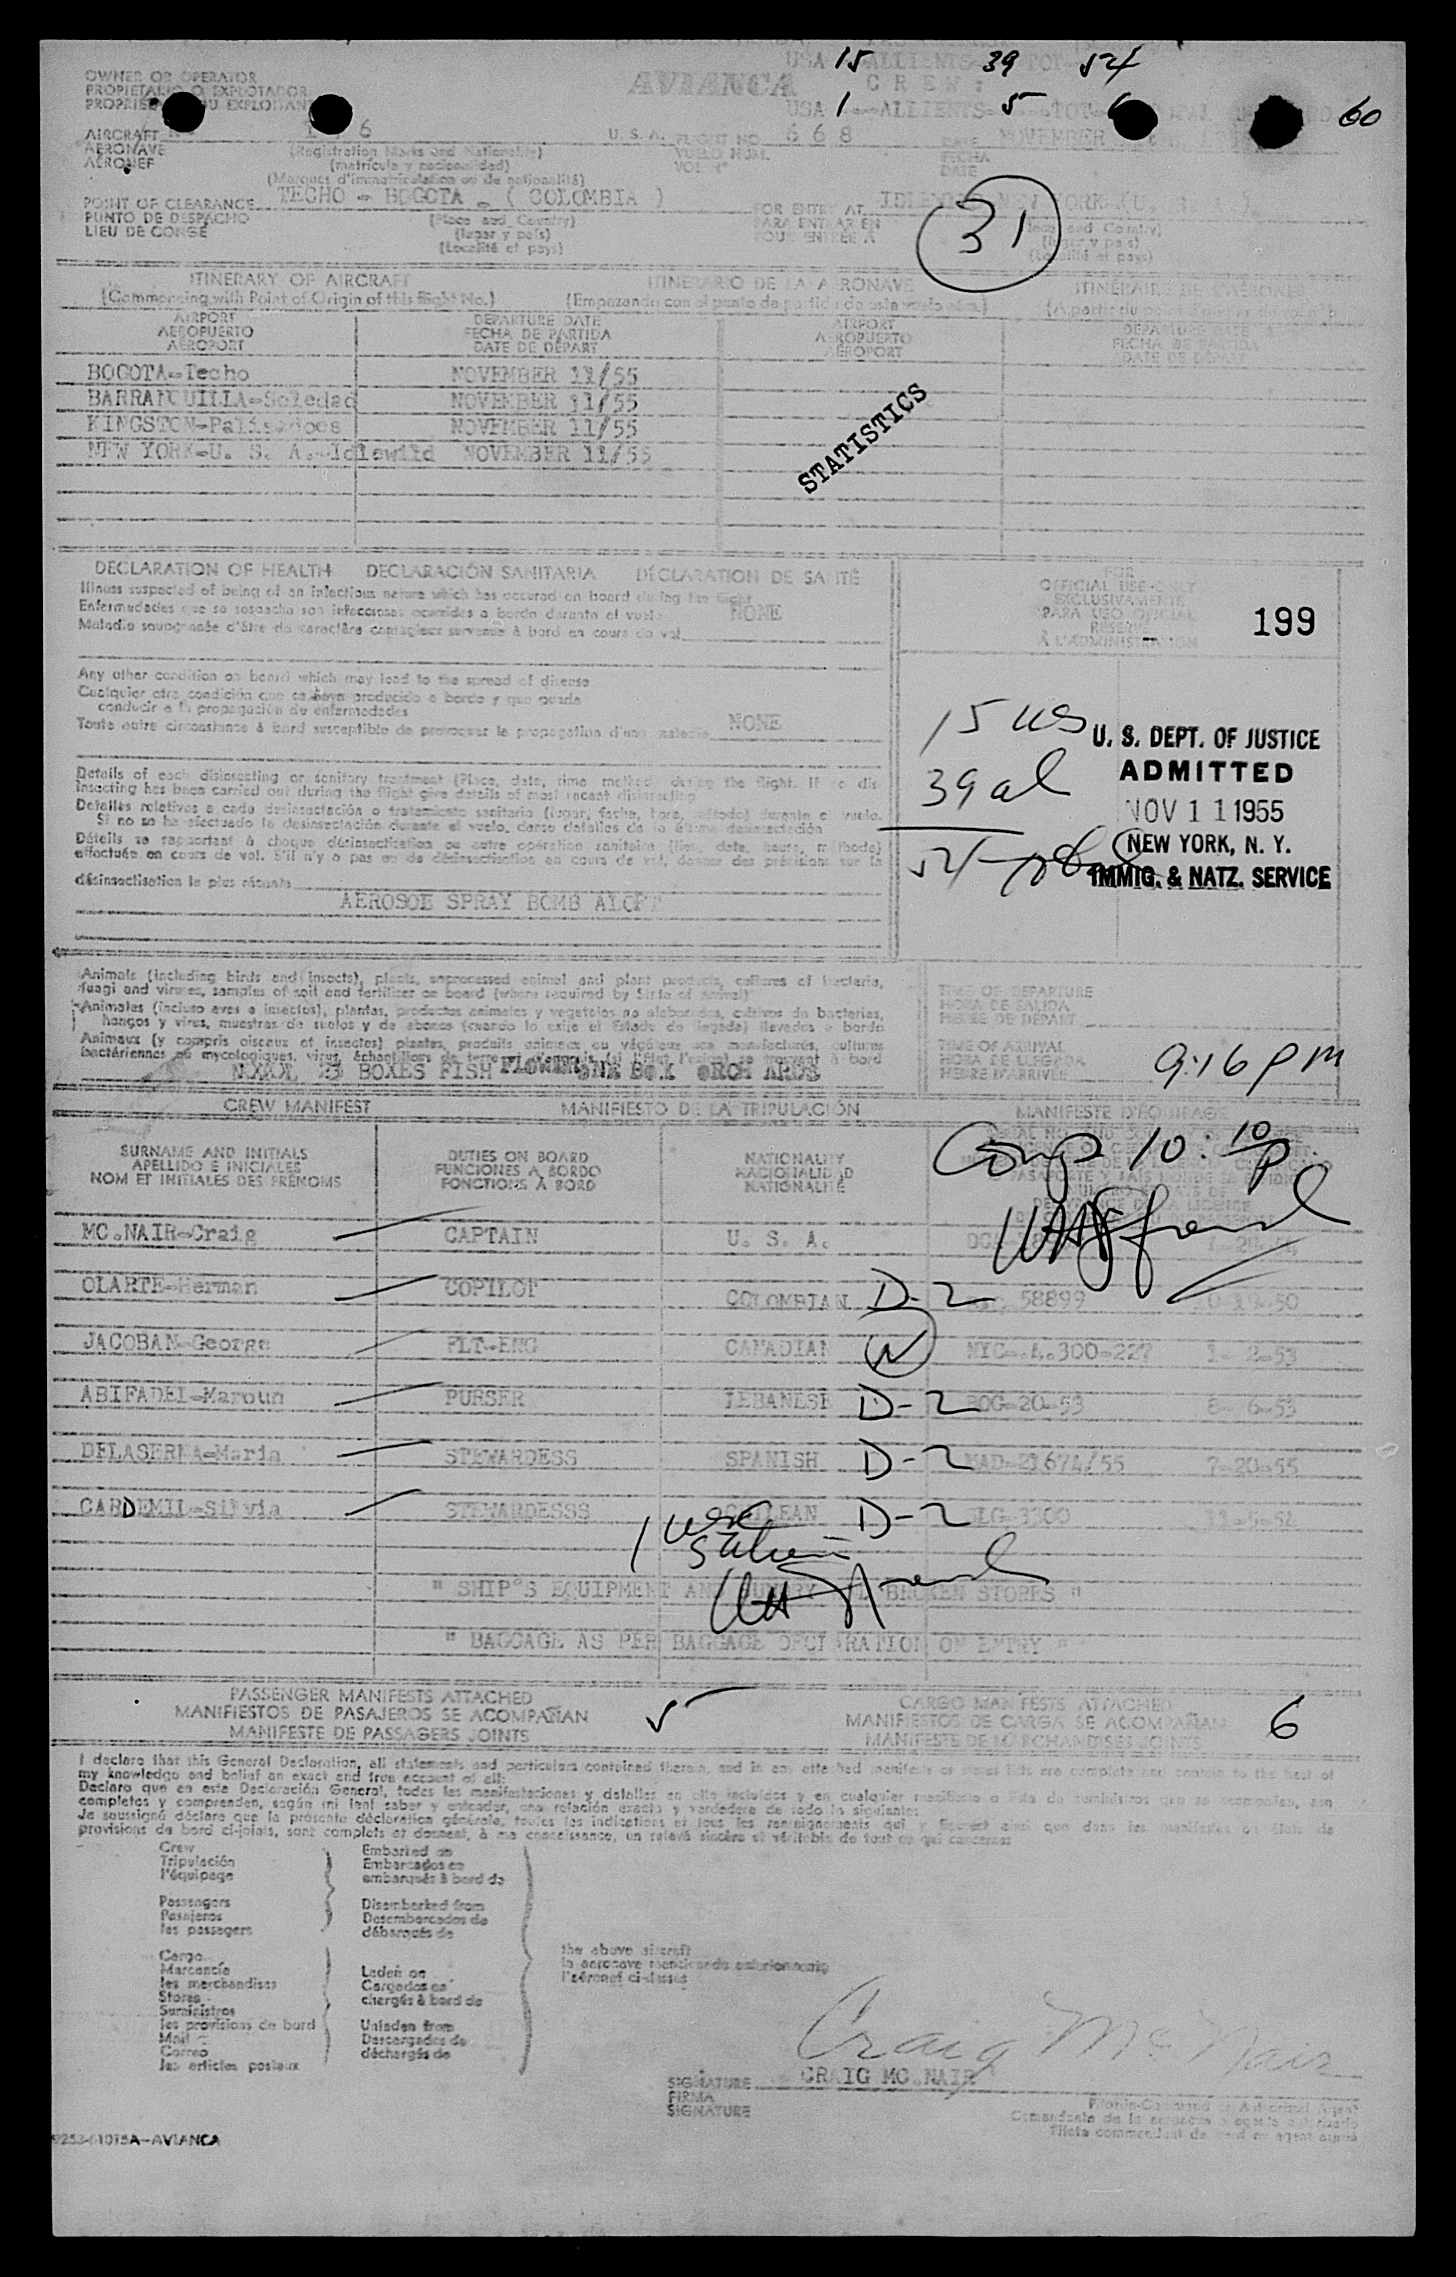 USA 15 ALLIENTS 39 TOT 54
OWNER OR OPERATOR
PROPIETARIO O EXPLOTADOR
AVIANCA
CREW:
USA 1 ALLIENTS 5 TOT 6 60
AIRCRAFT
AERONAVE
AÉRONEF
6 U. S. A.
(Registration Marks and Nationality)
(matrícula y nacionalidad)
(Marques d'immatriculation ou de nationalité)
FLIGHT NO. 668
VUELO NUM.
VOL Nº
DATE NOVEMBER
FECHA
DATE
POINT OF CLEARANCE TECHO - BOGOTA - ( COLOMBIA )
PUNTO DE DESPACHO
LIEU DE CONGÉ
(Place and Country)
(lugar y país)
(Localité et pays)
FOR ENTRY AT
PARA ENTRAR EN
POUR ENTRÉE A
31
ITINERARY OF AIRCRAFT ITINERARIO DE LA AERONAVE ITINÉRAIRE DE L'AÉRONEF
(Commencing with Point of Origin of this flight No.) (Empezando con el punto de partida de este vuelo núm.)
AIRPORT DEPARTURE DATE AIRPORT DEPARTURE DATE
AEROPUERTO FECHA DE PARTIDA AEROPUERTO FECHA DE PARTIDA
AÉROPORT DATE DE DÉPART AÉROPORT DATE DE DÉPART
BOGOTA-Techo NOVEMBER 11/55
BARRANQUILLA-Soledad NOVEMBER 11/55
KINGSTON-Palisadoes NOVEMBER 11/55
NEW YORK-U. S. A.-Idlewild NOVEMBER 11/55
STATISTICS
DECLARATION OF HEALTH DECLARACIÓN SANITARIA DÉCLARATION DE SANTÉ
Illness suspected of being of an infectious nature which has occured on board during the flight
Enfermedades que se sospecha son infecciosas ocurridas a bordo durante el vuelo NONE
Maladie soupçonnée d'être de caractère contagieux survenue à bord en cours de vol
FOR
OFFICIAL USE ONLY
EXCLUSIVAMENTE
PARA USO OFICIAL
RESERVÉ
À L'ADMINISTRATION
199
Any other condition on board which may lead to the spread of disease
Cualquier otra condición que se haya producido a bordo y que pueda
conducir a la propagación de enfermedades
Toute autre circonstance à bord susceptible de provoquer la propagation d'une maladie NONE
15 us
39 al
54
U. S. DEPT. OF JUSTICE
ADMITTED
NOV 11 1955
NEW YORK, N. Y.
IMMIG. & NATZ. SERVICE
Details of each disinsecting or sanitary treatment (Place, date, time method) during the flight. If no dis-
insecting has been carried out during the flight give details of most recent disinsecting
Detalles relativos a cada desinsectación o tratamiento sanitario (lugar, fecha, hora, método) durante el vuelo.
Si no se ha efectuado la desinsectación durante el vuelo, dense detalles de la última desinsectación
Détails se rapportant à chaque désinsectisation ou autre opération sanitaire (lieu, date, heure, méthode)
effectuée en cours de vol. S'il n'y a pas eu de désinsectisation en cours de vol, donner des précisions sur la
désinsectisation la plus récente
AEROSOL SPRAY BOMB ALOFT
Animals (including birds and insects), plants, unprocessed animal and plant products, cultures of bacteria,
fungi and viruses, samples of soil and fertilizer on board (where required by State of Arrival)
Animales (incluso aves e insectos), plantas, productos animales y vegetales no elaborados, cultivos de bacterias,
hongos y virus, muestras de suelos y de abonos (cuando lo exija el Estado de llegada) llevados a bordo
Animaux (y compris oiseaux et insectes) plantes, produits animaux ou végétaux non manufacturés, cultures
23 BOXES FISH FLOWER ONE BOX ORCHARDS
TIME OF DEPARTURE
HORA DE SALIDA
HEURE DE DÉPART
TIME OF ARRIVAL
HORA DE LLEGADA
HEURE D'ARRIVÉE 9:16 PM
CREW MANIFEST MANIFIESTO DE LA TRIPULACIÓN MANIFESTE D'ÉQUIPAGE
SURNAME AND INITIALS DUTIES ON BOARD NATIONALITY
APELLIDO E INICIALES FUNCIONES A BORDO NACIONALIDAD
NOM ET INITIALES DES PRÉNOMS FONCTIONS À BORD NATIONALITÉ
Comp 10:10 P
MC.NAIR-Craig CAPTAIN U. S. A.
OLARTE-Herman COPILOT COLOMBIAN D-2 58899
JACOBAN-George FLT-ENG CANADIAN N NYC-A.300-227 1- 2-53
ABIFADEL-Maroun PURSER LEBANESE D-2 BOG-20-53 8- 6-53
DELASERNA-Maria STEWARDESS SPANISH D-2 MAD-21674/55 7-20-55
CARDEMIL-Silvia STEWARDESSS CHILEAN D-2 3300
1 usc
" SHIP'S EQUIPMENT AND BROKEN STORES "
" BAGGAGE AS PER BAGGAGE DECLARATION ON ENTRY "
PASSENGER MANIFESTS ATTACHED
MANIFIESTOS DE PASAJEROS SE ACOMPAÑAN
MANIFESTE DE PASSAGERS JOINTS
5
CARGO MANIFESTS ATTACHED
MANIFIESTOS DE CARGA SE ACOMPAÑAN
MANIFESTE DE MARCHANDISES JOINTS
6
I declare that this General Declaration, all statements and particulars contained therein, and in any attached manifests or stores lists are complete and contain to the best of
my knowledge and belief an exact and true account of all:
Declaro que en esta Declaración General, todas las manifestaciones y detalles en ella incluidos y en cualquier manifiesto o lista de suministros que se acompañen, son
completos y comprenden, según mi leal saber y entender, una relación exacta y verdadera de todo lo siguiente:
Je soussigné déclare que la présente déclaration générale, toutes les indications et tous les renseignements qui y figurent ainsi que dans les manifestes ou états de
provisions de bord ci-joints, sont complets et donnent, à ma connaissance, un relevé sincère et véritable de tout ce qui concerne:
Crew
Tripulación
l'équipage
Embarked on
Embarcados en
embarqués à bord de
Passengers
Pasajeros
les passagers
Disembarked from
Desembarcados de
débarqués de
Cargo
Mercancía
les marchandises
Stores
Suministros
les provisions de bord
Mail
Correo
les articles postaux
Laden on
Cargados en
chargés à bord de
Unladen from
Descargados de
déchargés de
the above aircraft
la aeronave mencionada anteriormente
l'aéronef ci-dessus
Craig McNair
SIGNATURE CRAIG MC.NAIR
FIRMA
SIGNATURE
Pilot-in-Command or Authorized Agent
Comandante de la aeronave o agente autorizado
9253-61015A-AVIANCA